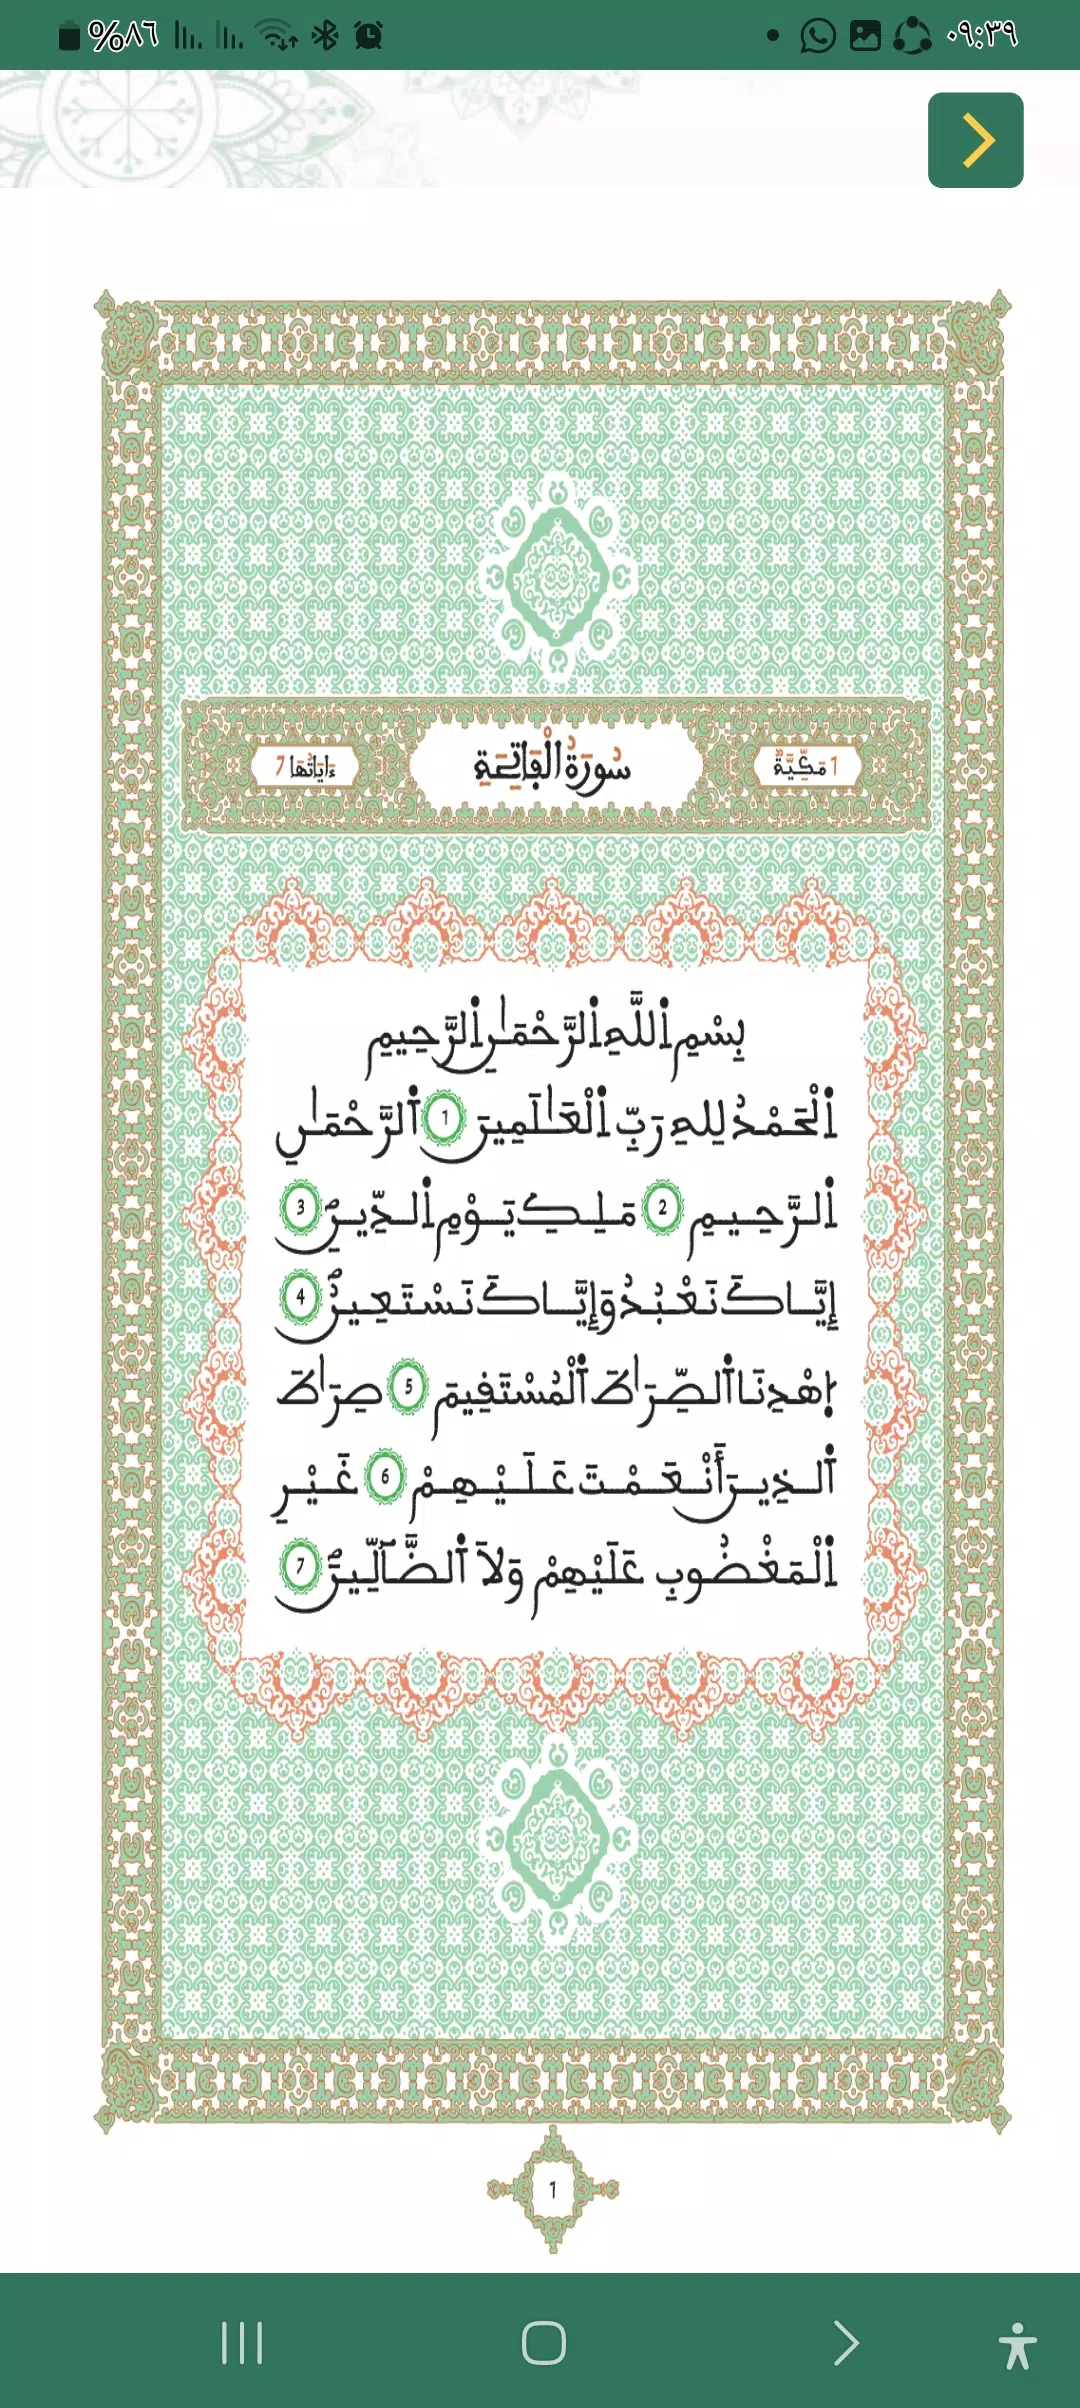 %٨٦ ٠٩:٣٩
1 مَكِّيَّةٌ سُورَةُ اَ۬لْفَاتِحَةِ ءَايَاتُهَا 7
بِسْمِ اِ۬للَّهِ اِ۬لرَّحْمَٰنِ اِ۬لرَّحِيمِ
اِ۬لْحَمْدُ لِلهِ رَبِّ اِ۬لْعَٰلَمِينَ 1 اَ۬لرَّحْمَٰنِ
اِ۬لرَّحِيمِ 2 مَلِكِ يَوْمِ اِ۬لدِّينِ 3
إِيَّاكَ نَعْبُدُ وَإِيَّاكَ نَسْتَعِينُ 4
اِ۪هْدِنَا اَ۬لصِّرَٰطَ اَ۬لْمُسْتَقِيمَ 5 صِرَٰطَ
اَ۬لذِينَ أَنْعَمْتَ عَلَيْهِمْ 6 غَيْرِ
اِ۬لْمَغْضُوبِ عَلَيْهِمْ وَلَا اَ۬لضَّآلِّينَ 7
1